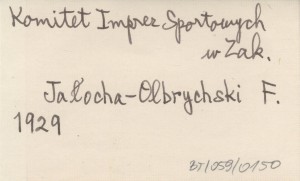 Komitet Imprez Sportowych
w Zak.
Jałocha-Olbrychski F.
1929
BT/059/0150